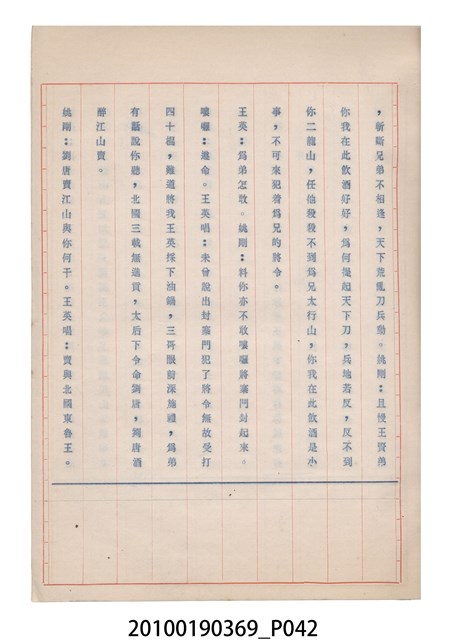 ，斬斷兄弟不相逢，天下荒亂刀兵動。姚剛：且慢王賢弟
你我在此飲酒好好，為何提起天下刀，兵地若反，反不到
你二龍山，任他殺殺不到為兄太行山，你我在此飲酒是小
事，不可來犯着為兄的將令。
王英：為弟怎敢。姚剛：料你亦不敢嘍囉將寨門封起來。
嘍囉：遵命。王英唱：未曾說出封寨門犯了將令無故受打
四十棍，難道將我王英採下油鍋，三哥眼前深施禮，為弟
有話說你聽，北國三戰無進貢，太后下令命劉唐，劉唐酒
醉江山賣。
姚剛：劉唐賣江山與你何干。王英唱：賣與北國東魯王。
20100190369_P042